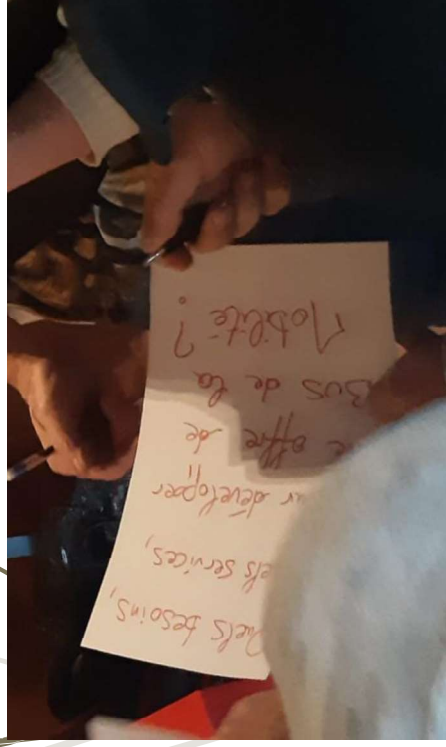 Quels besoins,
els services,
ur développer
e offre de
Bus de la
Mobilité ?